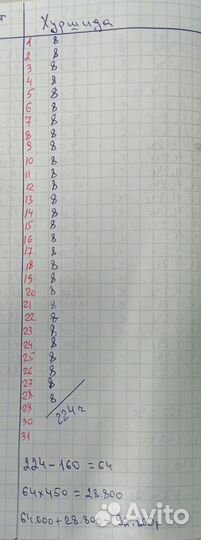 Хуршида
1 8
2 8
3 8
4 8
5 8
6 8
7 8
8 8
9 8
10 8
11 8
12 8
13 8
14 8
15 8
16 8
17 8
18 8
19 8
20 8
21 8
22 8
23 8
24 8
25 8
26 8
27 8
28 8
29
30 224ч
31
224-160=64
64x450=28.800
64.000+28.80
Avito